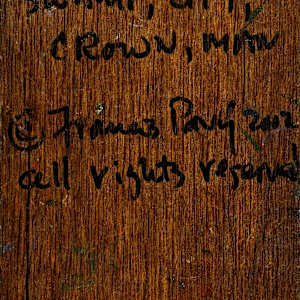 CROWN, MAN
© Francis Pavy 2002
all rights reserved